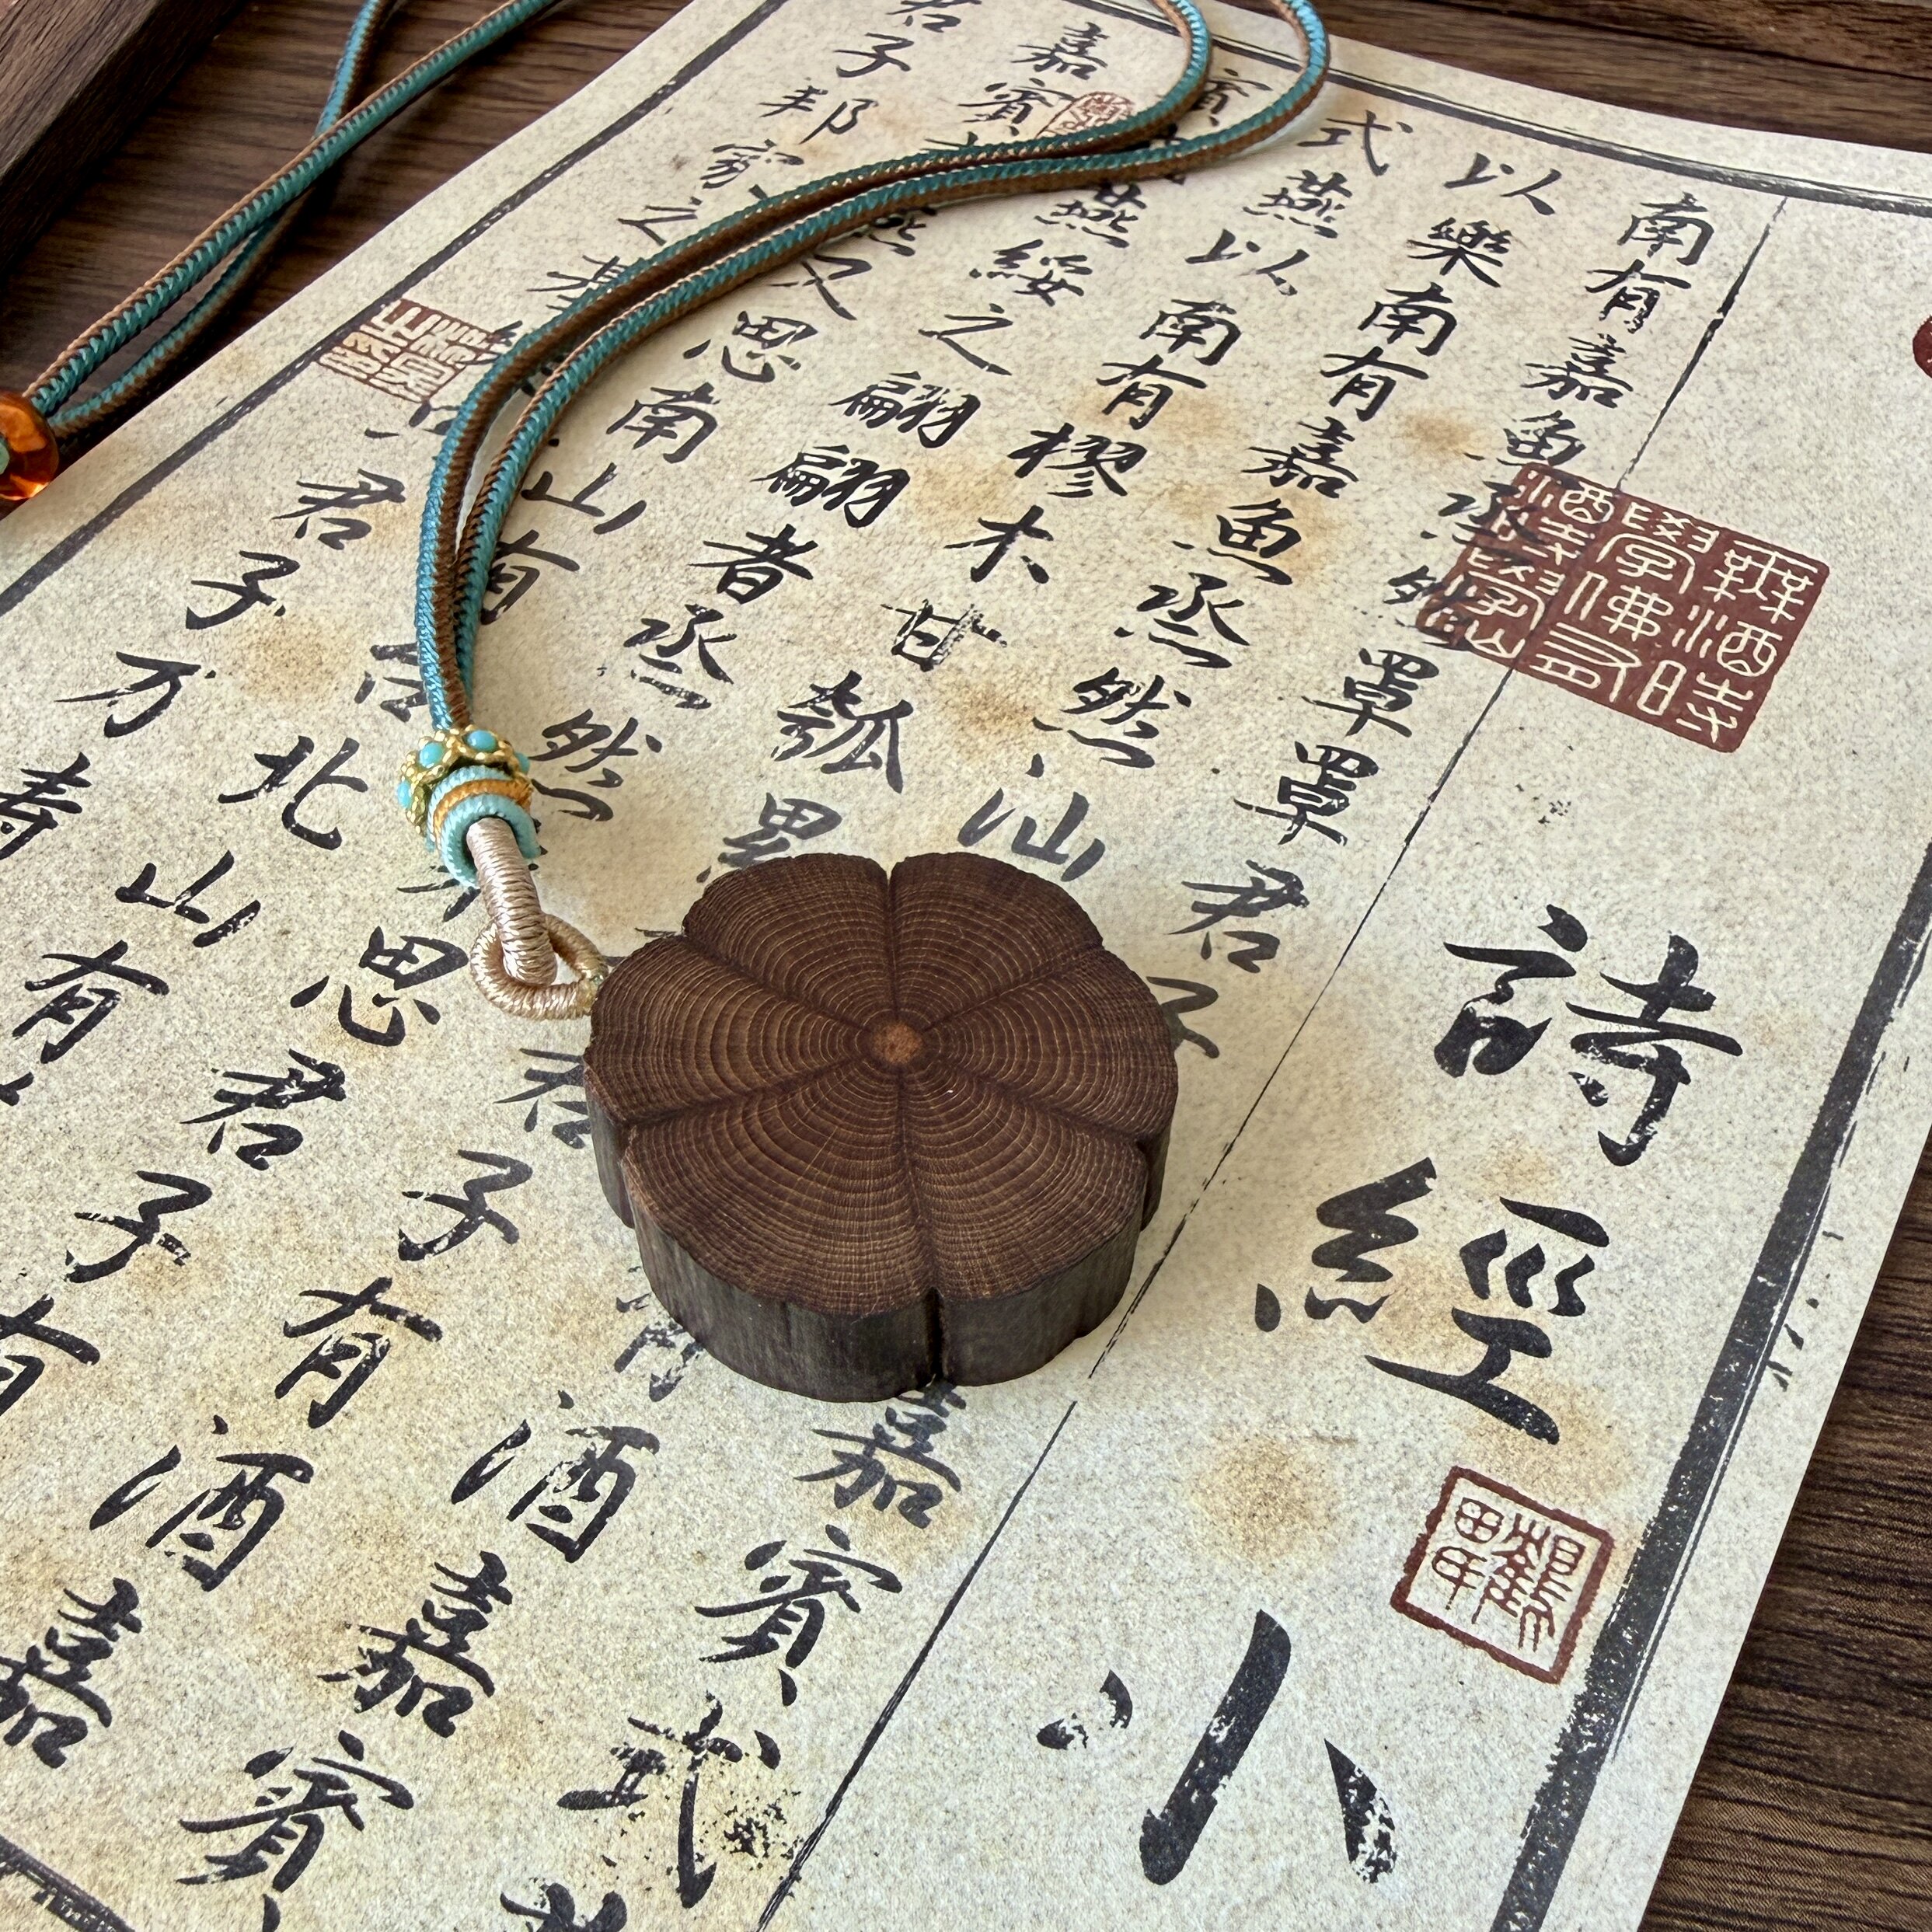 詩經小
南有嘉魚烝然罩罩君子嘉賓式
以樂南有嘉魚烝然汕有酒嘉賓
式燕以南有樛木甘瓠纍君子有酒嘉
賓燕綏之翩翩者烝然思君子有
嘉賓燕又思南山有台北山有
君子邦家之基只君子万壽